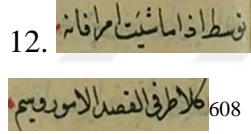 12. توسط اذا ما شئت امرا فانه
كلا طرفي القصد الامور ذميم 608